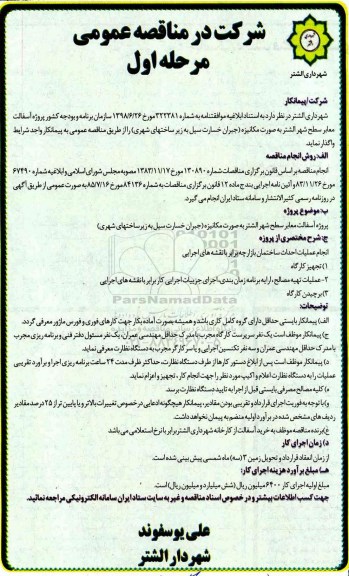 شرکت در مناقصه عمومی
مرحله اول
شهرداری الشتر
شرکت/پیمانکار
شهرداری الشتر در نظر دارد به استناد ابلاغیه موافقتنامه به شماره ۳۲۲۳۸۱ مورخ ۱۳۹۸/۶/۲۶ سازمان برنامه وبودجه کشور پروژه آسفالت
معابر سطح شهر الشتر به صورت مکانیزه (جبران خسارت سیل به زیر ساختهای شهری) را از طریق مناقصه عمومی به پیمانکار واجد شرایط
واگذار نماید.
الف: روش انجام مناقصه
انجام مناقصه بر اساس قانون برگزاری مناقصات شماره ۱۳۰۸۹۰ مورخ ۱۳۸۳/۱۱/۱۷ مصوبه مجلس شورای اسلامی و ابلاغیه شماره ۶۷۴۹۰
مورخ ۸۳/۱۱/۲۶ و آئین نامه اجرایی بند ج ماده ۱۲ قانون برگزاری مناقصات به شماره ۸۴۱۳۶ مورخ ۸۵/۷/۱۶ به صورت عمومی از طریق آگهی
در روزنامه رسمی کثیر الانتشار و سامانه ستاد ایران انجام می گیرد.
ب: موضوع پروژه
پروژه آسفالت معابر سطح شهر الشتر به صورت مکانیزه (جبران خسارت سیل به زیر ساختهای شهری)
ج: شرح مختصری از پروژه
انجام عملیات احداث ساختمان بازارچه برابر با نقشه های اجرایی
۱) تجهیز کارگاه
۲- عملیات تهیه مصالح، ارایه برنامه زمان بندی، اجرای جزییات اجرایی کار برابر با نقشه های اجرایی
۳) برچیدن کارگاه
توضیحات:
الف) پیمانکار بایستی حداقل دارای گروه کامل کاری باشد و همیشه بصورت آماده بکار جهت کارهای فوری و فورس ماژور معرفی گردد.
ج) پیمانکار موظف است یک نفر سرپرست کارگاه مجرب با مدرک حداقل مهندسی عمران، یک نفر مسئول دفتر فنی و برنامه ریزی مجرب
با مدرک حداقل مهندسی عمران و سه نفر تکنسین اجرایی و یا سرکارگر مجرب به دستگاه نظارت معرفی نماید.
د) پیمانکار موظف است پس از ابلاغ دستور کارها از طرف دستگاه نظارت، حداکثر ظرف مدت ۲۴ ساعت برنامه ریزی اجرا و برآورد تقریبی
عملیات را به دستگاه نظارت اعلام و اکیپ مورد نظر را جهت انجام کار، تجهیز و اعزام نماید.
ه) کلیه مصالح مصرفی بایستی قبل از اجرا به تایید دستگاه نظارت برسد.
و) با توجه به فوریت اجرای قرارداد و تقریبی بودن مقادیر، پیمانکار هیچگونه ادعایی در خصوص تغییرات بالاتر و یا پایین تر از ۲۵ درصد مقادیر
ردیف های مشخص شده در برآورد اولیه منضم به پیمان نخواهد داشت.
غ) برنده مناقصه موظف به خرید آسفالت از کارخانه شهرداری الشتر برابر با نرخ استعلامی می باشد
د) زمان اجرای کار
از زمان انعقاد قرارداد و تحویل زمین ۳ (سه) ماه شمسی پیش بینی شده است.
هـ) مبلغ برآورد هزینه اجرای کار:
مبلغ اولیه اجرای کار ۶۴۰۰ میلیون ریال (شش میلیارد و میلیون ریال) است.
جهت کسب اطلاعات بیشتر و در خصوص اسناد مناقصه و غیر به سایت ستاد ایران سامانه الکترونیکی مراجعه نمائید.
علی یوسفوند
شهردار الشتر
ParsNamadData